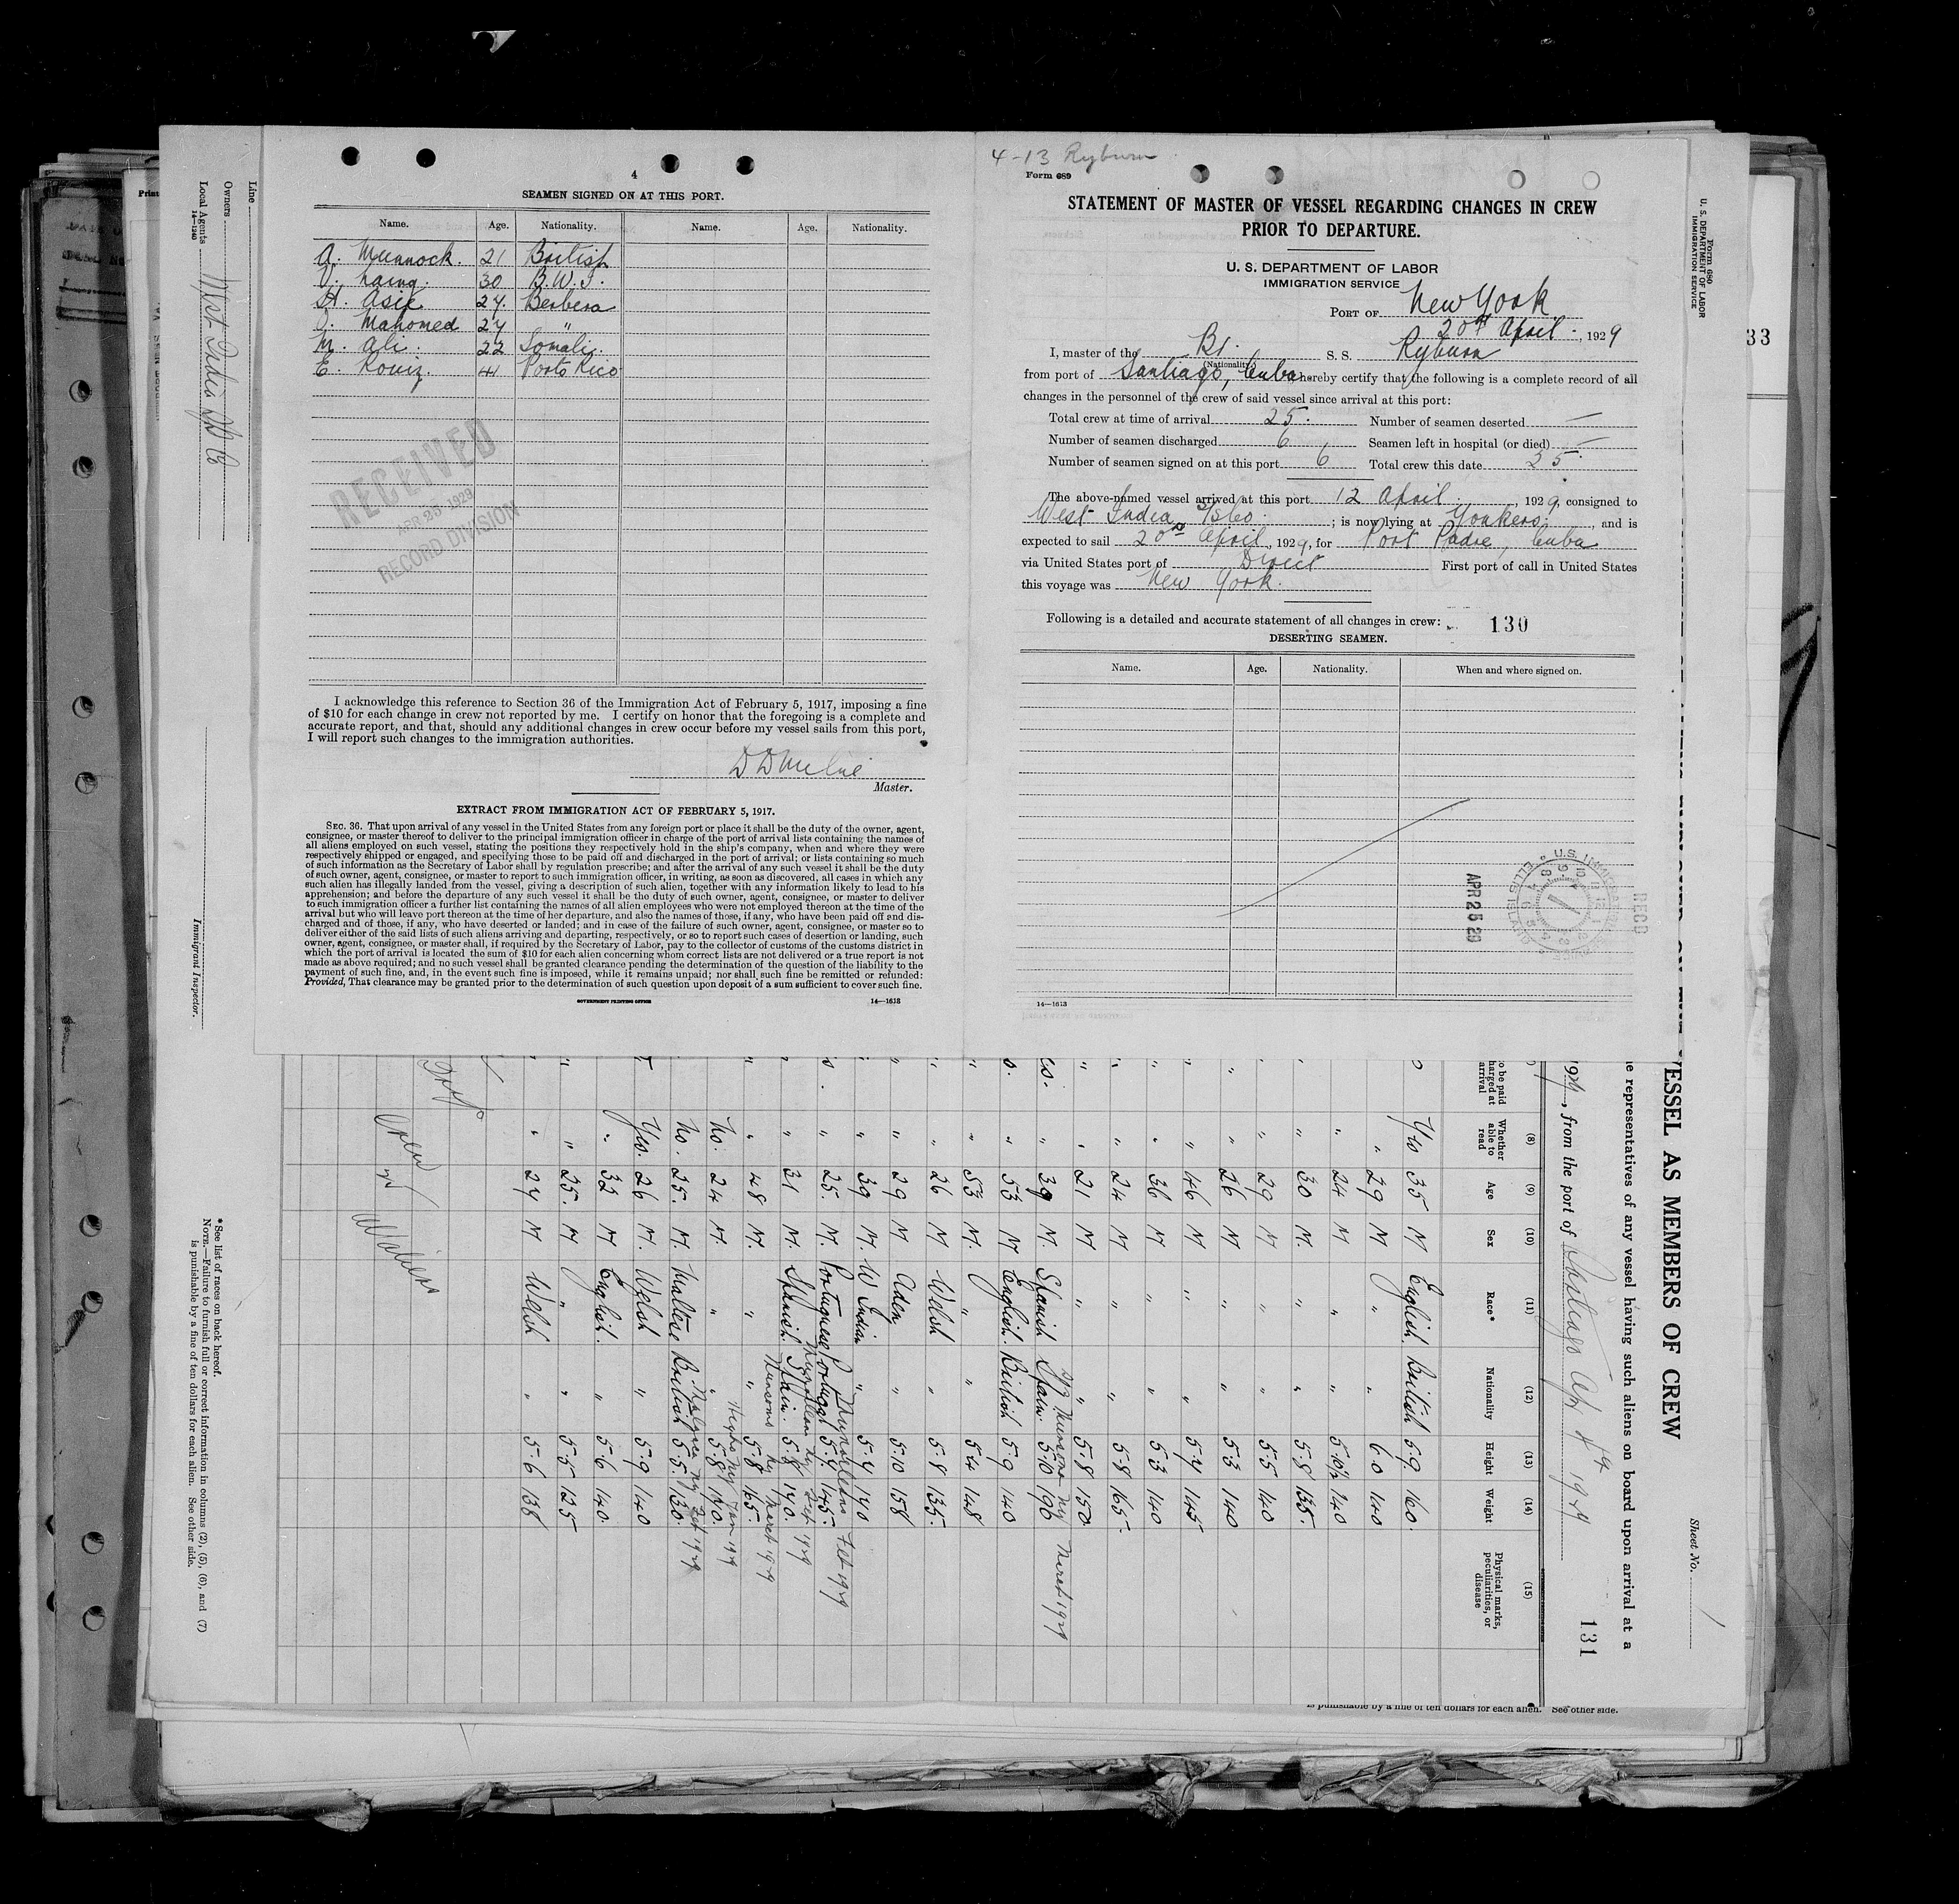 4
SEAMEN SIGNED ON AT THIS PORT.
Name. Age. Nationality. Name. Age. Nationality.
A. Murnock. 21 British
V. Laing. 30 B.W.I.
H. Asie 24. Berbera
Mahomed 24 "
M. Ali. 22 Somali.
E. Rouiz. 41 Porto Rico
RECEIVED
APR 25 1929
RECORD DIVISION
I acknowledge this reference to Section 36 of the Immigration Act of February 5, 1917, imposing a fine
of $10 for each change in crew not reported by me. I certify on honor that the foregoing is a complete and
accurate report, and that, should any additional changes in crew occur before my vessel sails from this port,
I will report such changes to the immigration authorities.
Master.
EXTRACT FROM IMMIGRATION ACT OF FEBRUARY 5, 1917.
SEC. 36. That upon arrival of any vessel in the United States from any foreign port or place it shall be the duty of the owner, agent,
consignee, or master thereof to deliver to the principal immigration officer in charge of the port of arrival lists containing the names of
all aliens employed on such vessel, stating the positions they respectively hold in the ship's company, when and where they were
respectively shipped or engaged, and specifying those to be paid off and discharged in the port of arrival; or lists containing so much
of such information as the Secretary of Labor shall by regulation prescribe; and after the arrival of any such vessel it shall be the duty
of such owner, agent, consignee, or master to report to such immigration officer, in writing, as soon as discovered, all cases in which any
such alien has illegally landed from the vessel, giving a description of such alien, together with any information likely to lead to his
apprehension; and before the departure of any such vessel it shall be the duty of such owner, agent, consignee, or master to deliver
to such immigration officer a further list containing the names of all alien employees who were not employed thereon at the time of the
arrival but who will leave port thereon at the time of her departure, and also the names of those, if any, who have been paid off and dis-
charged and of those, if any, who have deserted or landed; and in case of the failure of such owner, agent, consignee, or master so to
deliver either of the said lists of such aliens arriving and departing, respectively, or so to report such cases of desertion or landing, such
owner, agent, consignee, or master shall, if required by the Secretary of Labor, pay to the collector of customs of the customs district in
which the port of arrival is located the sum of $10 for each alien concerning whom correct lists are not delivered or a true report is not
made as above required; and no such vessel shall be granted clearance pending the determination of the question of the liability to the
payment of such fine, and, in the event such fine is imposed, while it remains unpaid; nor shall such fine be remitted or refunded:
Provided, That clearance may be granted prior to the determination of such question upon deposit of a sum sufficient to cover such fine.
GOVERNMENT PRINTING OFFICE 14—1613
4-13 Ryburn
Form 689
STATEMENT OF MASTER OF VESSEL REGARDING CHANGES IN CREW
PRIOR TO DEPARTURE.
U. S. DEPARTMENT OF LABOR
IMMIGRATION SERVICE
PORT OF New York
20th April, 1929
I, master of the Br. S. S. Ryburn
(Nationality)
from port of Santiago, Cuba hereby certify that the following is a complete record of all
changes in the personnel of the crew of said vessel since arrival at this port:
Total crew at time of arrival 25. Number of seamen deserted —
Number of seamen discharged 6 Seamen left in hospital (or died) —
Number of seamen signed on at this port 6 Total crew this date 25
The above-named vessel arrived at this port 12 April, 1929, consigned to
West India S/S Co.; is now lying at Yonkers, and is
expected to sail 20th April, 1929, for Port Padre, Cuba
via United States port of Direct First port of call in United States
this voyage was New York.
Following is a detailed and accurate statement of all changes in crew: 130
DESERTING SEAMEN.
Name. Age. Nationality. When and where signed on.
APR 25 29
RECD
U.S. IMMIGRATION
ELLIS ISLAND
14—1613
Form 680
U. S. DEPARTMENT OF LABOR
IMMIGRATION SERVICE
33
Line
Owners
Local Agents West India S/S Co
14—1240
Immigrant Inspector.
Sheet No. 1
VESSEL AS MEMBERS OF CREW
representatives of any vessel having such aliens on board upon arrival at a
, from the port of Santiago Apr 4th 1929
131
(8) (9) (10) (11) (12) (13) (14) (15)
Whether able to read Age Sex Race* Nationality Height Weight Physical marks, peculiarities, or disease
Yes 35 M English British 5-9 160
" 29 M " " 6-0 140
" 24 M " " 5-10½ 140
" 30 M. " " 5-8 135
" 29 M " " 5-5 140
" 26 M " " 5-3 140
" 46 M " " 5-4 145
" 36 M " " 5-3 140
" 24 M " " 5-8 165
" 21 M " " 5-8 150
" 39 M. Spanish Spain 5-10 196
" 53 M English British 5-9 140
" 53 M. " " 5-4 148
" 26 M Welsh " 5-8 135
" 29 M Aden " 5-10 158
" 39 M. W Indian " 5-4 140
" 25. M. Portuguese Portugal 5-4 145
" 31 M. Spanish Spain 5-8 140
" 48 M. " " 5-8 165
No. 24 M. " " 5-8 140
No. 25. M. Maltese British 5-5 130
Yes. 26 M. Welsh " 5-9 140
" 32 M English " 5-6 140
" 25. M " " 5-5 125
" 24 M Welsh " 5-6 138
*See list of races on back hereof.
NOTE.—Failure to furnish full or correct information in columns (2), (5), (6), and (7)
is punishable by a fine of ten dollars for each alien. See other side.
is punishable by a fine of ten dollars for each alien. See other side.